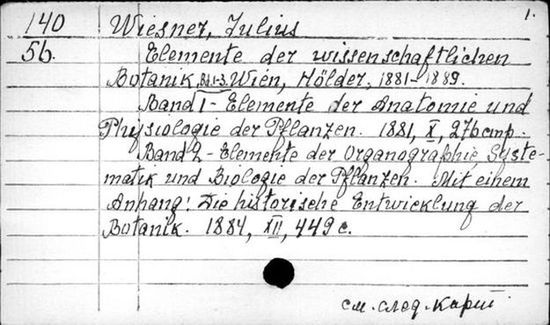 1.
140 Wiesner, Julius
56. Elemente der wissenschaftlichen
Botanik, Bd.1-3. Wien, Hölder, 1881-1889.
Band 1 - Elemente der Anatomie und
Physiologie der Pflanzen. 1881, X, 276 стр.
Band 2 - Elemente der Organographie, Syste-
matik und Biologie der Pflanzen. Mit einem
Anhang: Die historische Entwicklung der
Botanik. 1884, XII, 449 с.
см. след. карт